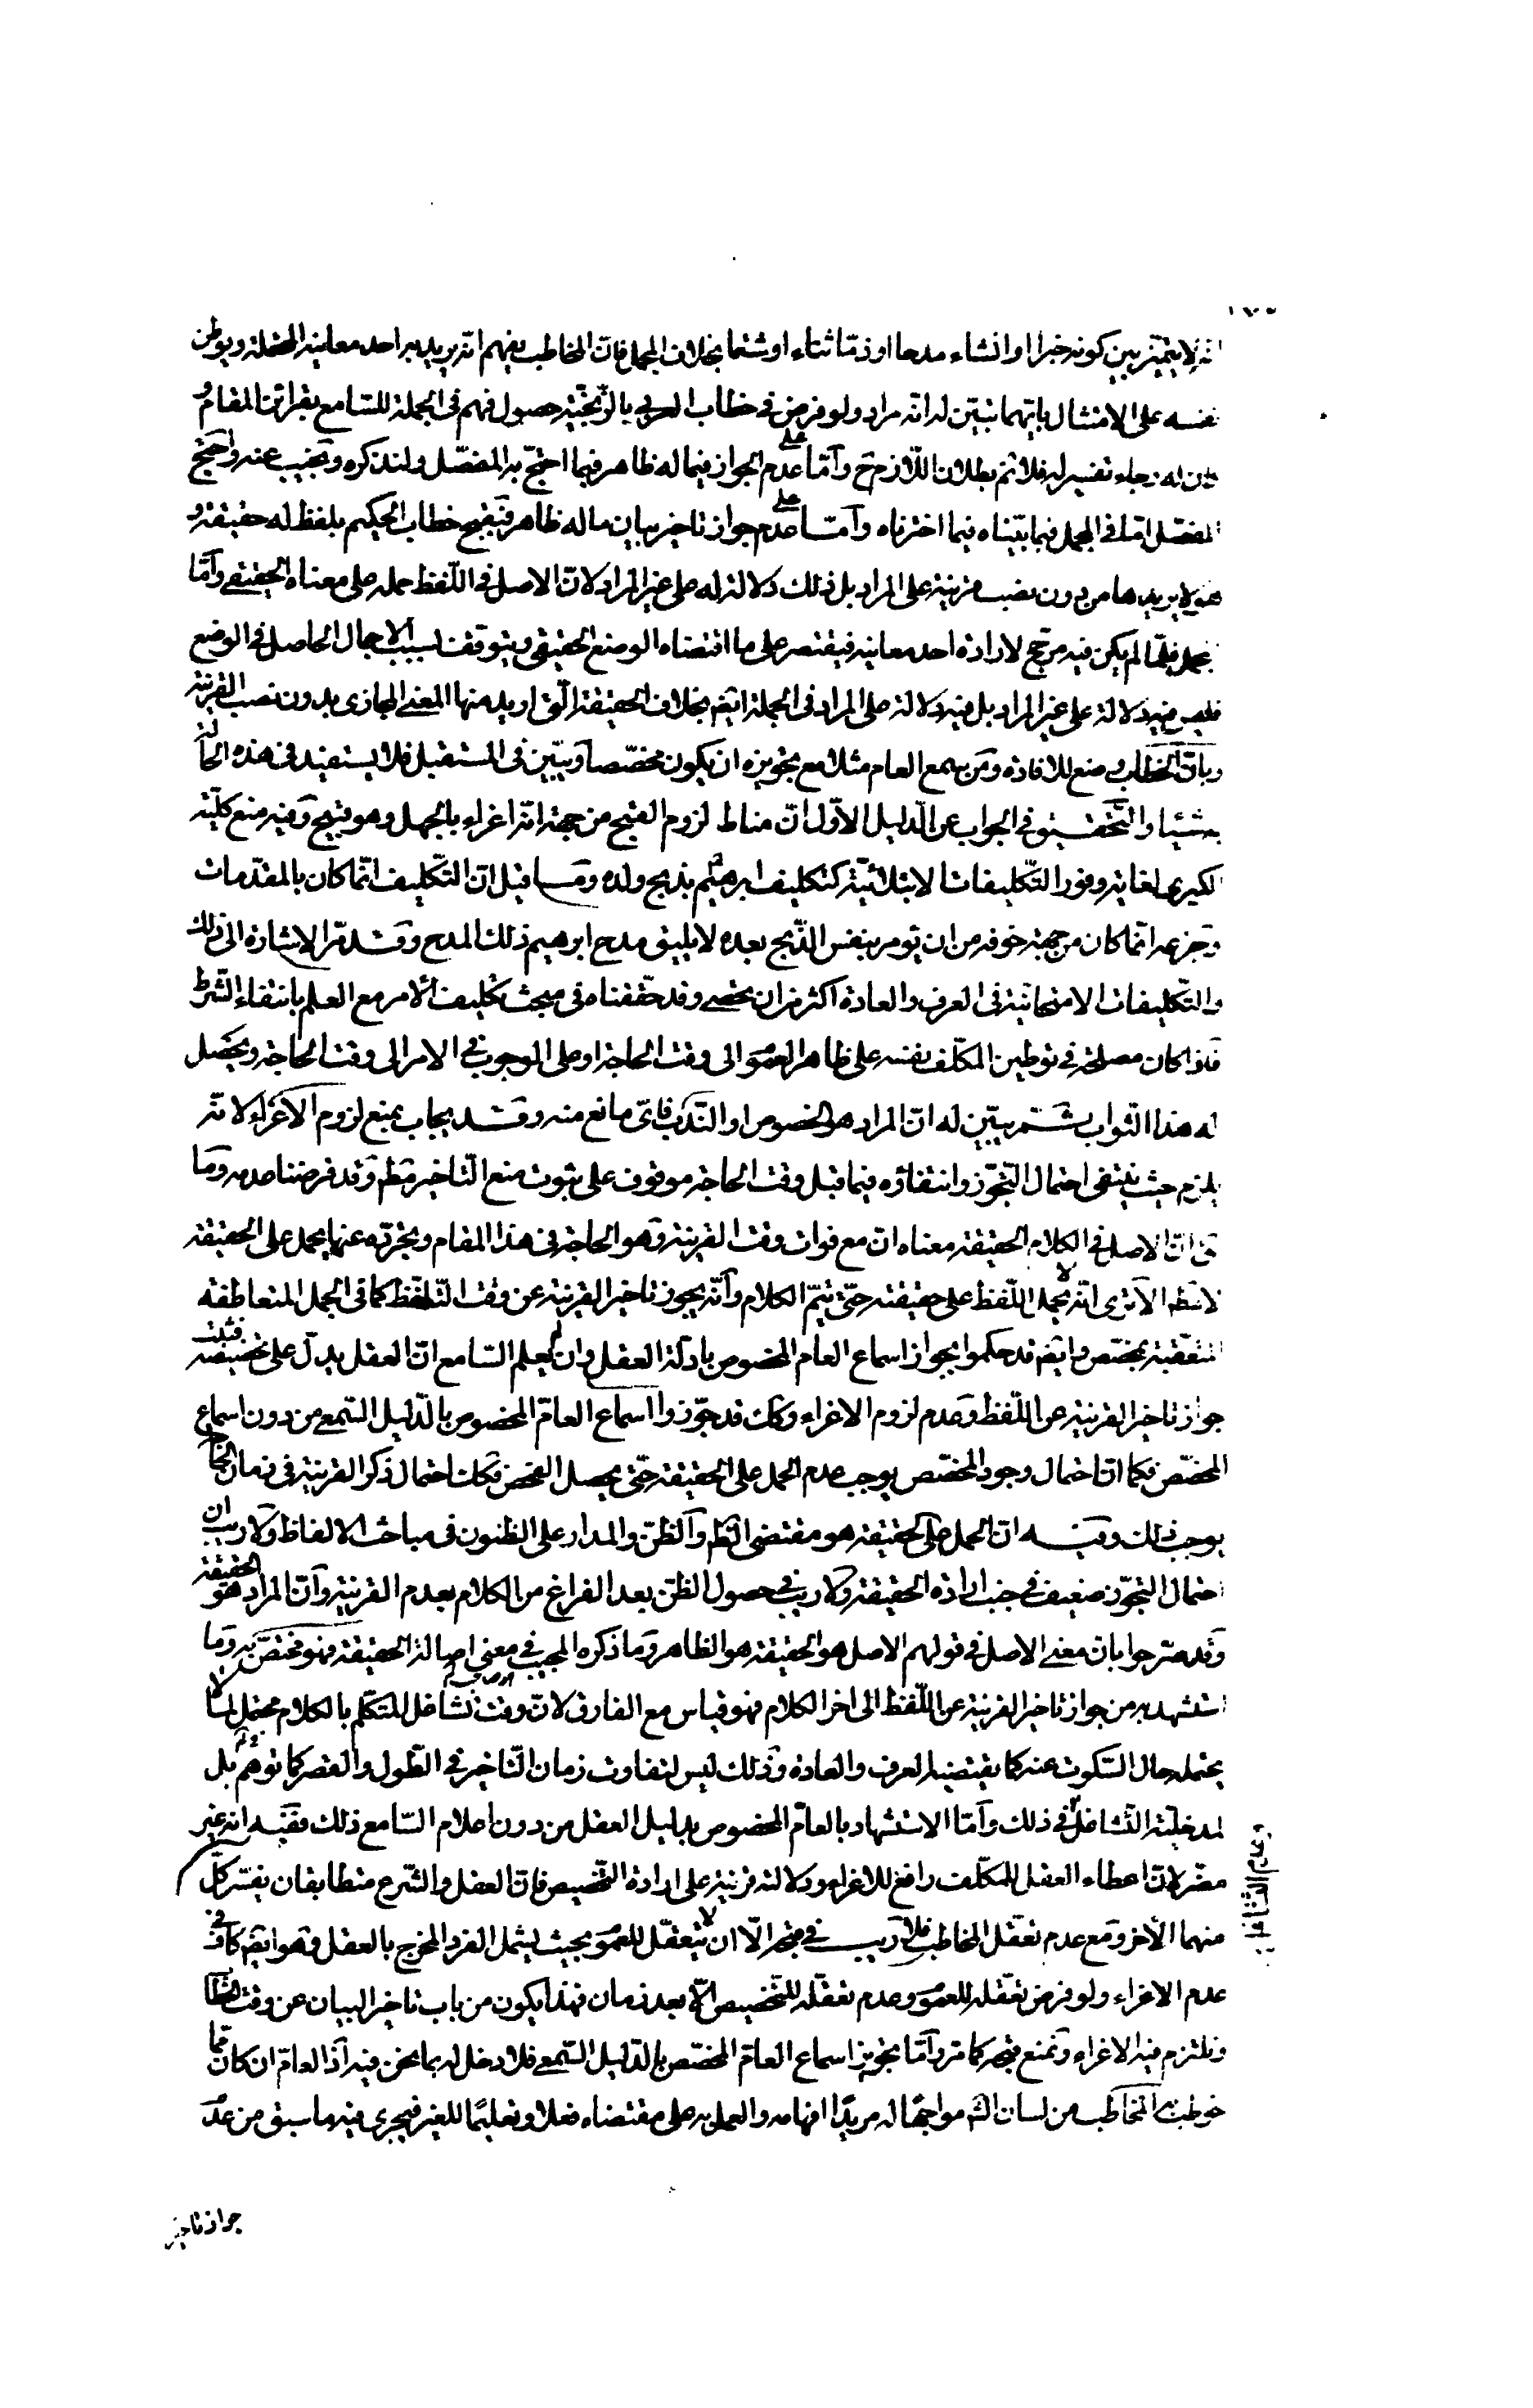 انه لا يتميز بين كونه خبرا او انشاء مدحا او ذمّا ثناء او شتما بخلاف المجمل فانّ المخاطب يفهم انّه يريد به احد معانيه المحتملة ويوطن
نفسه على الامتثال بايّهما تبيّن له انّه مراد ولو فرض فى خطاب العربى بالزّنجيّة حصول فهم فى الجملة للسّامع بقرائن المقام و
رجاء تفسير له فلا نم بطلان اللّازم ح وامّا على عدم الجواز فيما له ظاهر فيما احتجّ به المفصّل ولنذكره ونجيب عنه واحتجّ
المفصّل امّا فى المجمل فبما بيّنّاه فيما اخترناه وامّا على عدم جواز تاخير بيان ما له ظاهر فبقبح خطاب الحكيم بلفظ له حقيقة و
هو لا يريدها من دون نصب قرينة على المراد بل ذلك دلالة له على غير المراد لانّ الاصل فى اللّفظ حمله على معناه الحقيقى وامّا
المجمل فلمّا لم يكن فيه مرجّح لارادة احد معانيه فيقتصر على ما اقتضاه الوضع الحقيقى ويتوقف لسبب الاجمال الحاصل فى الوضع
فليس فيه دلالة على غير المراد بل فيه دلالة على المراد فى الجملة ايضم بخلاف الحقيقة الّتى اريد منها المعنى المجازى بدون نصب القرينة
وبانّ الخطاب وضع للافادة ومن يسمع العام مثلا مع تجويزه ان يكون مخصّصا ويبيّن فى المستقبل فلا يستفيد فى هذه الحالة
به شيئا والتّحقيق فى الجواب عن الدّليل الاوّل انّ مناط لزوم القبح من جهة انّه اغراء بالجهل وهو قبيح وفيه منع كليّة
الكبرى لغاية وفور التّكليفات الابتلائيّة كتكليف ابرهيم بذبح ولده وما قيل انّ التّكليف انّما كان بالمقدّمات
وجزعه انّما كان من جهة خوفه من ان يؤمر بنفس الذّبح بعده لا يليق مدح ابرهيم ذلك المدح وقد مرّ الاشارة الى ذلك
والتّكليفات الامتحانيّة فى العرف والعادة اكثر من ان يحصى وقد حقّقناه فى مبحث تكليف الامر مع العلم بانتفاء الشّرط
فاذا كان مصلحة فى توطين المكلّف نفسه على ظاهر العموم الى وقت الحاجة او على الوجوب فى الامر الى وقت الحاجة ويحصل
له هذا الثّواب ثمّ يبيّن له انّ المراد هو الخصوص او النّدب فاىّ مانع منه وقد يجاب بمنع لزوم الاغراء لانّه
يلزم حيث ينتفى احتمال التّجوّز وانتفاؤه فيما قبل وقت الحاجة موقوف على ثبوت منع التّاخير مطم وقد فرضنا عدمه وما
قيل انّ الاصل فى الكلام الحقيقة معناه انّ مع فوات وقت القرينة وهو الحاجة فى هذا المقام وتجرّده عنها يحمل على الحقيقة
لا مطم الا ترى انّه لا يحمل اللّفظ على حقيقته حتّى يتمّ الكلام وانّه يجوز تاخير القرينة عن وقت التّلفّظ كما فى الجمل المتعاطفة
المتعقّبة بمخصّص وايضم قد حكموا بجواز اسماع العام المخصوص بادلّة العقل وان لم يعلم السّامع انّ العقل يدلّ على تخصيصه فثبت
جواز تاخير القرينة عن اللّفظ وعدم لزوم الاغراء وكك قد جوّزوا اسماع العامّ المخصوص بالدّليل السّمعى من دون اسماع
المخصّص فكما انّ احتمال وجود المخصّص يوجب عدم الحمل على الحقيقة حتّى يحصل الفحص فكك احتمال ذكر القرينة فى زمان الحاجة
يوجب ذلك وفيه انّ الحمل على الحقيقة هو مقتضى الظّم والظّنّ والمدار على الظنون فى مباحث الالفاظ ولا ريب ان
احتمال التجوّز ضعيف فى جنب ارادة الحقيقة ولا ريب فى حصول الظّنّ بعد الفراغ من الكلام بعدم القرينة وانّ المراد هو الحقيقة
وقد صرّحوا بان معنى الاصل فى قولهم الاصل هو الحقيقة هو الظاهر وما ذكره المجيب فى معنى اصالة الحقيقة فهو مختصّ به وما
استشهد به من جواز تاخير القرينة عن اللّفظ الى اخر الكلام فهو قياس مع الفارق لانّ وقت تشاغل المتكلّم بالكلام محتمل لما لا
يحتمله حال السّكوت عنه كما يقتضيه العرف والعادة وذلك ليس لتفاوت زمان التّاخير فى الطّول والقصر كما توهّم بل
لمدخليّة التّشاغل فى ذلك وامّا الاستشهاد بالعامّ المخصوص بدليل العقل من دون اعلام السّامع ذلك ففيه انه غير
مضرّ لانّ اعطاء العقل للمكلّف رافع للاغراء ودلالة قرينة على ارادة التّخصيص فانّ العقل والشّرع متطابقان يفسّر كلّ
منهما الآخر ومع عدم تعقّل المخاطب فلا ريب فى قبحه الّا ان لا يتعقّل للعموم بحيث يشمل الفرد المخرج بالعقل وهو ايضم كاف فى
عدم الاغراء ولو فرض تعقّله للعموم وعدم تعقّله للتّخصيص الّا بعد زمان فهذا يكون من باب تاخير البيان عن وقت الخطاب
ونلتزم فيه الاغراء ونمنع قبحه كما مرّ وامّا تجويز اسماع العامّ المخصّص بالدّليل السّمعى فلا دخل له بما نحن فيه اذ العامّ ان كان ممّا
خوطب به المخاطب من لسان الشّم مواجها له مريدًا افهامه والعمل به على مقتضاه فعلا وتعليمًا للغير فيجرى فيه ما سبق من عدم
جواز تاخير